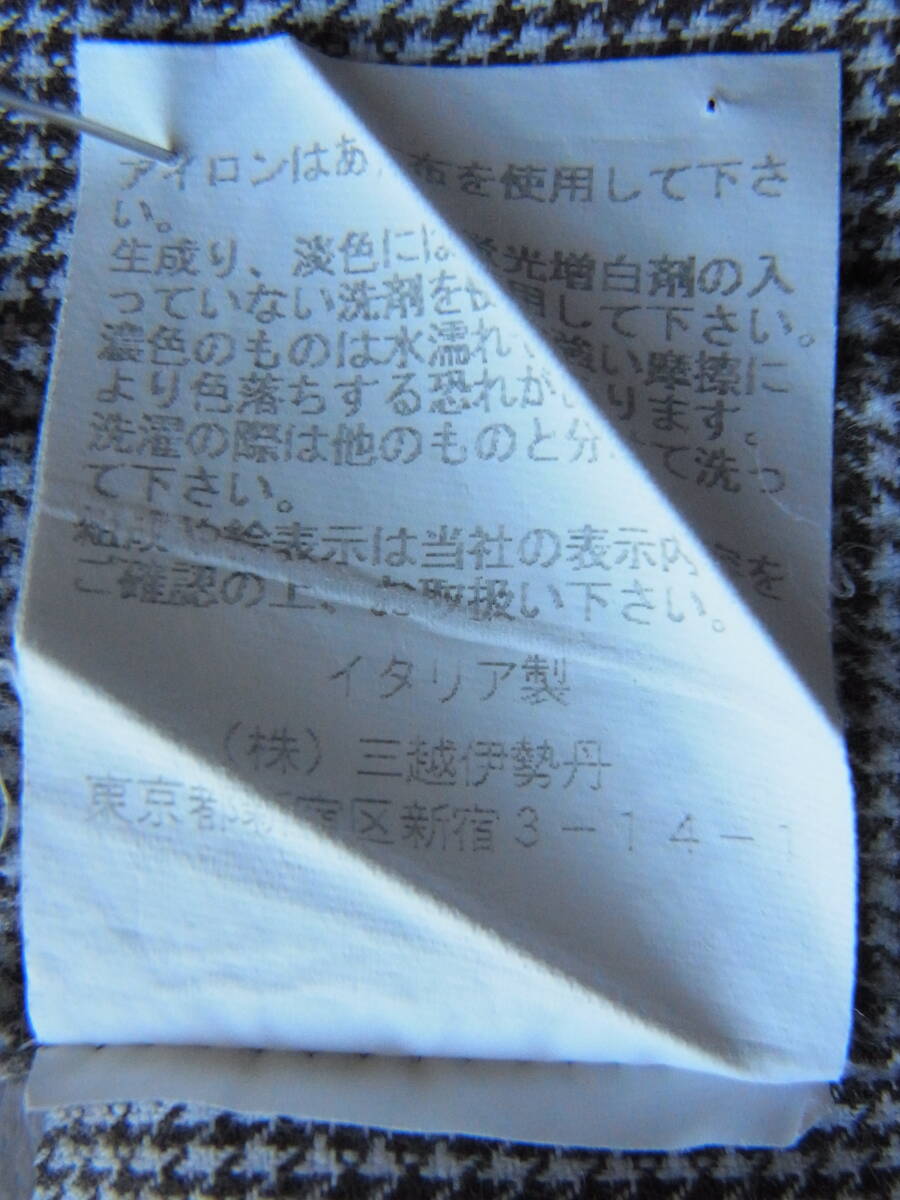 アイロンはあて布を使用して下さ
い。
生成り、淡色には蛍光増白剤の入
っていない洗剤を使用して下さい。
濃色のものは水濡れ、強い摩擦に
より色落ちする恐れがあります。
洗濯の際は他のものと分けて洗っ
て下さい。
組成や絵表示は当社の表示内容を
ご確認の上、お取扱い下さい。
イタリア製
（株）三越伊勢丹
東京都新宿区新宿３－１４－１